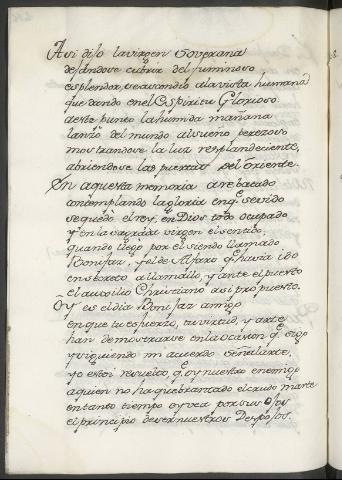 Asi dijo la virgen Soverana
dejandose cubrir del luminoso
esplendor, se ascondio ala vista humana
quedando en el Espiritu Glorioso
a este punto la humida mañana
lanzo del mundo al sueño perezoso
mostrandose la luz resplandeciente,
abriendose las puertas del Oriente.
En aquesta memoria arrebatado
contemplando la gloria en q̃ se vido
se quedo el rey, en Dios todo ocupado
y en la sagrada virgen el sentido,
quando llegò por el siendo llamado
Bonifaz, y el de Alfaro q̃ havia ido
en secreto a llamallo, y ante el puesto
el auxilio Christiano assi propuesto.
Oy es el dia Bonifaz amigo
en que tu esfuerzo, tu virtud, y arte
han de mostrarse en la ocasion q̃ sigo
y siguiendo mi acuerdo señalarte,
yo estoi resuelto, q̃ oy nuestro enemigo
a quien no ha quebrantado el crudo marte
en tanto tiempo oy vea por sus ojos
el principio de ser nuestros Despojos.